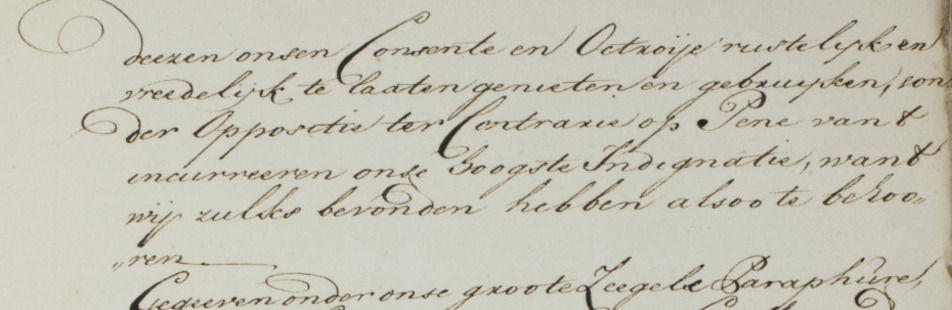 deezen onsen Consente en Octroije rustelijk en
vreedelijk te laaten genieten en gebruijken, son„
der Oppositie ter Contrarie op Pene van 't
incurreeren onse hoogste Indignatie, want
wij zulks bevonden hebben alsoo te behoo„
„ren
Gegeeven onder onse groote Zeegel & Paraphure,